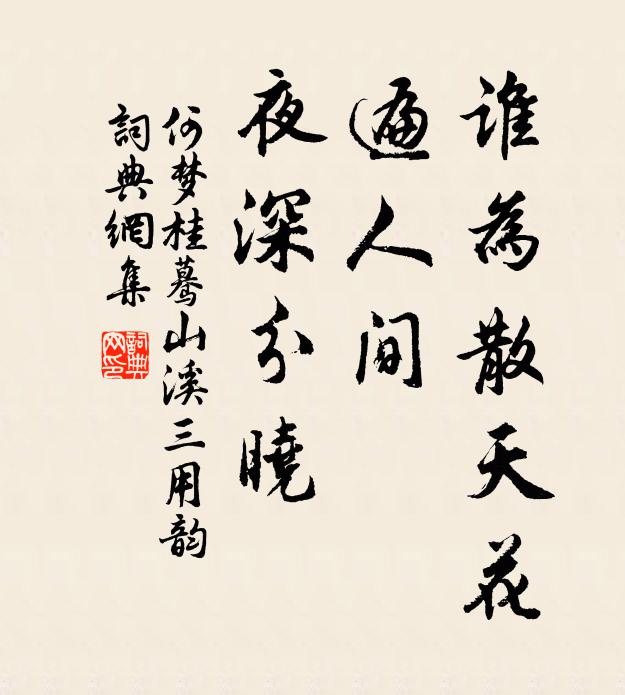 誰為散天花
遍人间
夜深分曉
何梦桂驀山溪三用韵
詞典網集
詞典网印